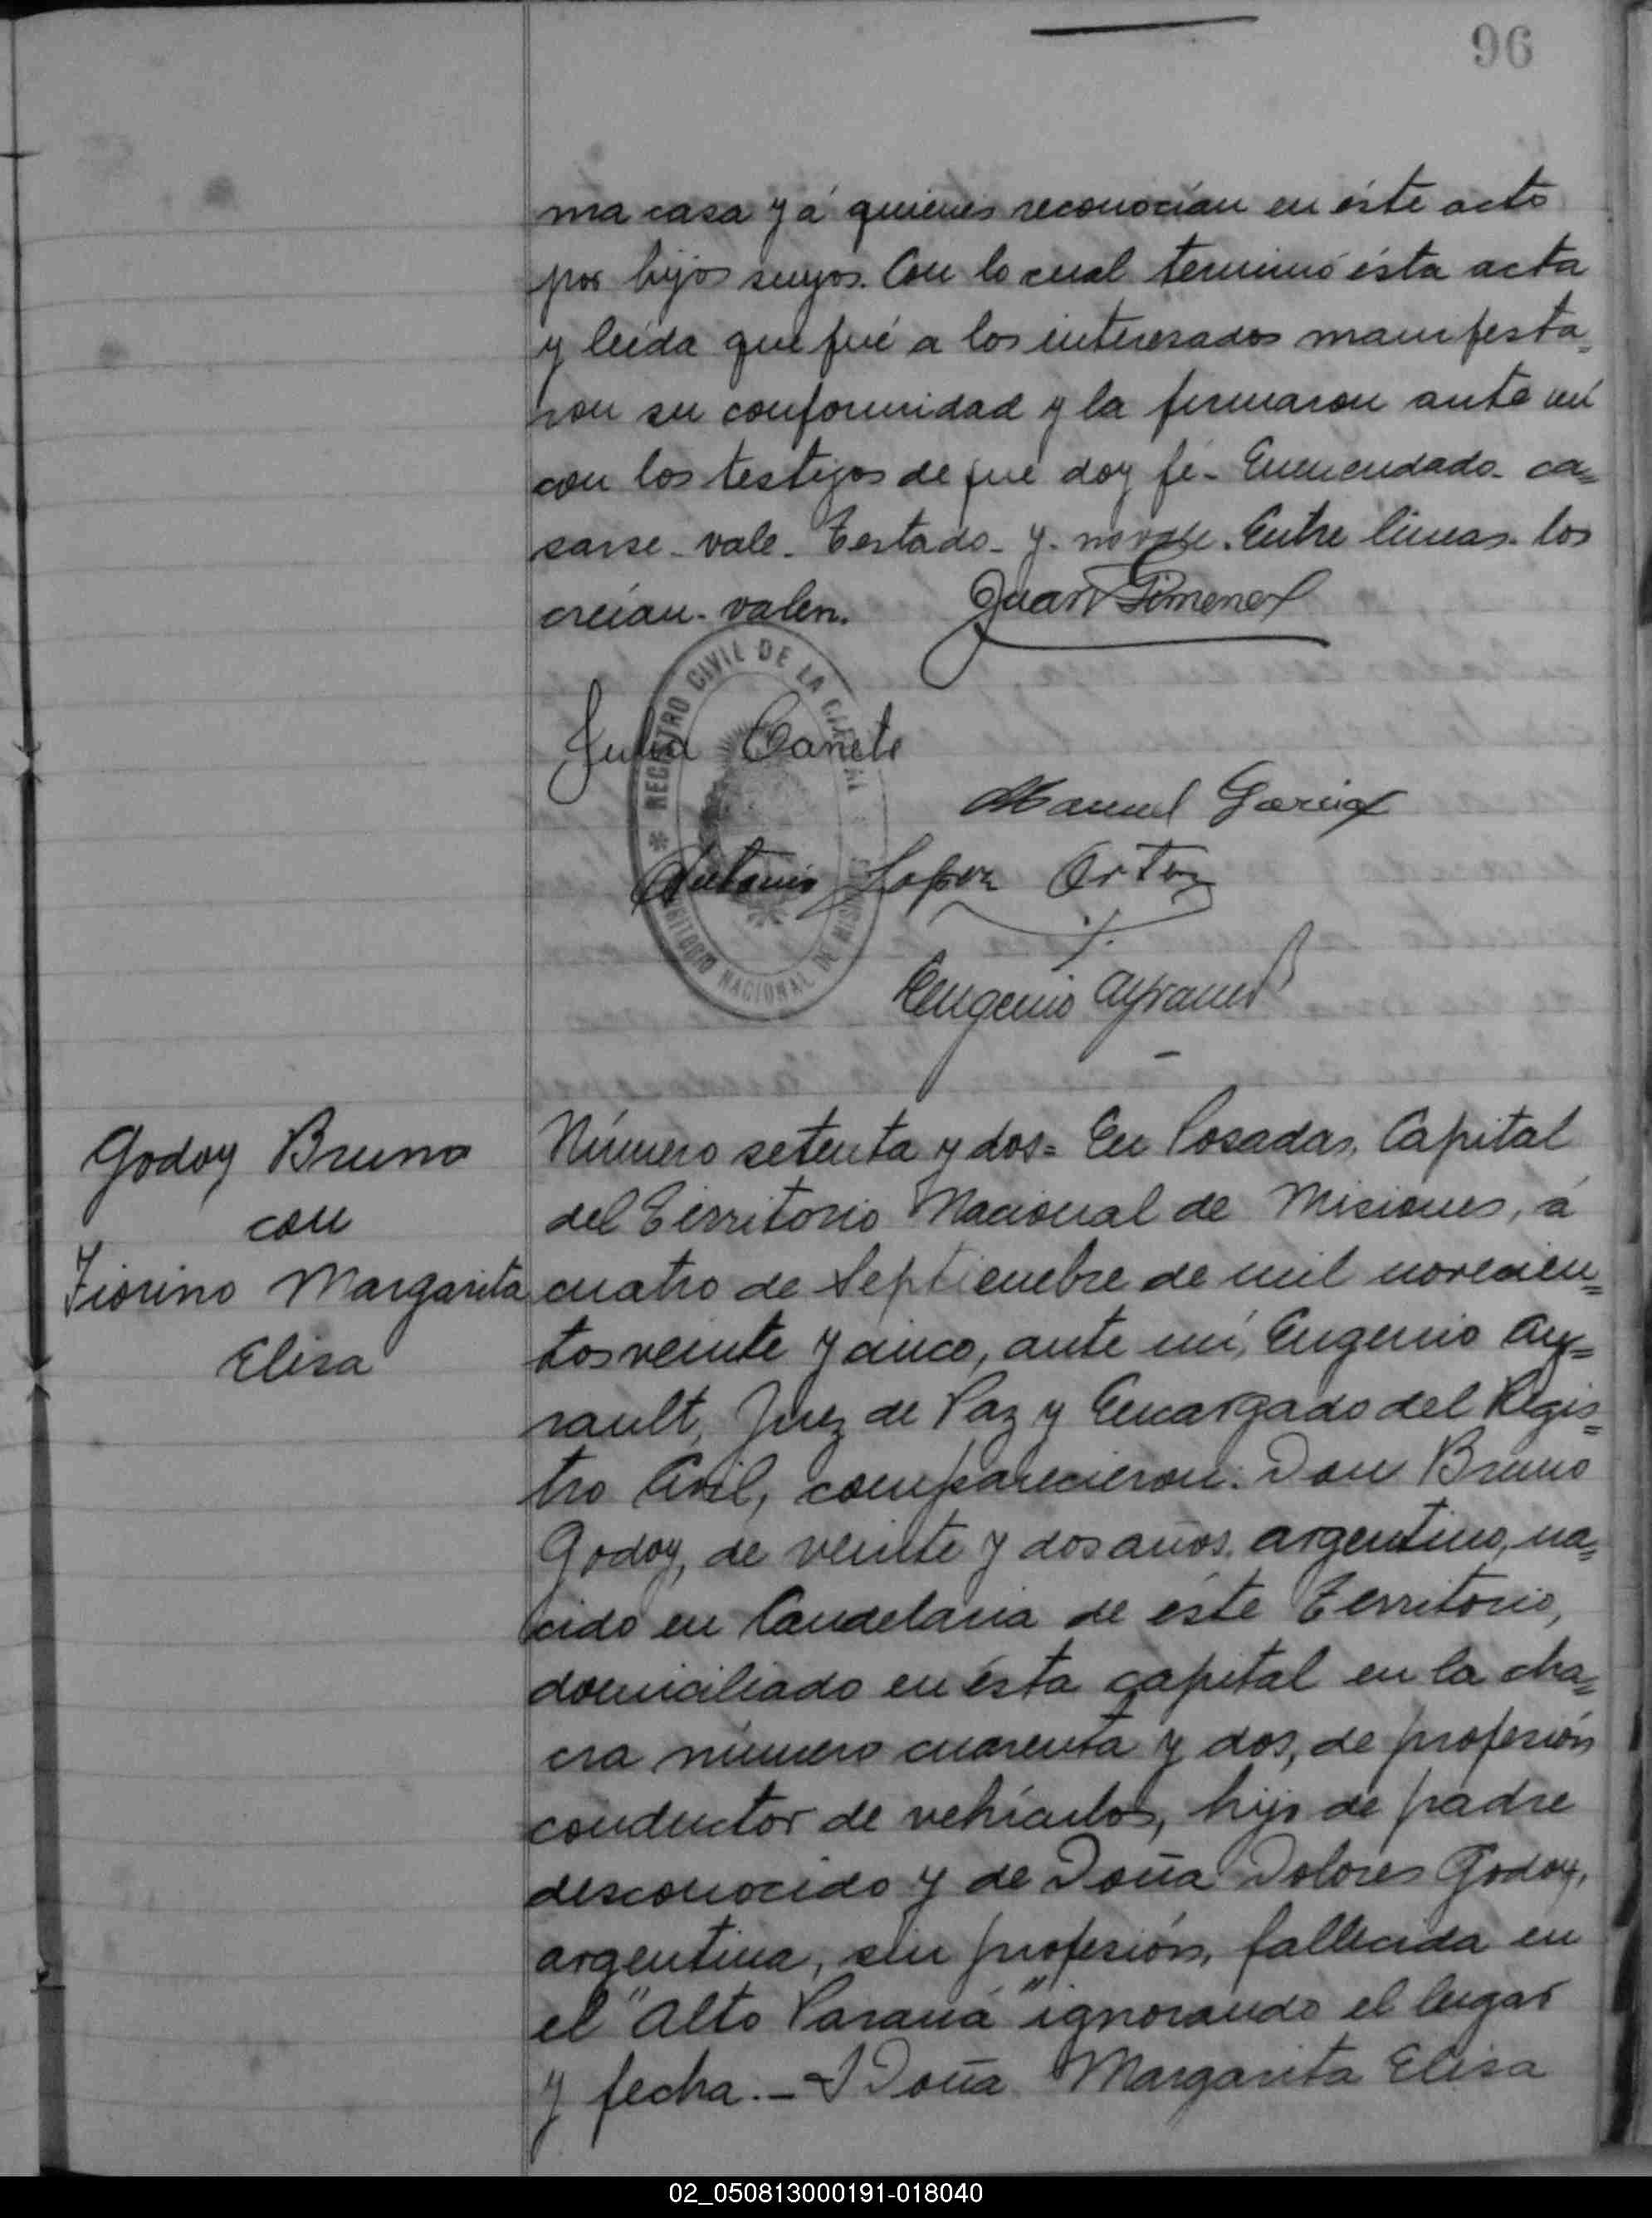 96
ma casa y á quienes reconocían en éste acto
por hijos suyos. Con lo cual terminó ésta acta
y leída que fué a los interesados manifesta=
ron su conformidad y la firmaron ante mí
con los testigos de que doy fé - Enmendado - ca=
sarse - vale - Testado - y - no vale. Entre líneas - los
creían - valen.
Juan Gimenez
Julia Cañete
REGISTRO CIVIL DE LA CAPITAL
TERRITORIO NACIONAL DE MISIONES
Manuel Garcia
Antonio Lopez Ortez
Eugenio Ayrault
Godoy Bruno
con
Fiorino Margarita
Elisa
Número setenta y dos = En Posadas, Capital
del Territorio Nacional de Misiones, á
cuatro de Septiembre de mil novecien=
tos veinte y cinco, ante mí, Eugenio Ay=
rault, Juez de Paz y Encargado del Regis=
tro Civil, comparecieron: Don Bruno
Godoy, de veinte y dos años, argentino, na=
cido en Candelaria de éste Territorio,
domiciliado en ésta capital en la cha=
cra número cuarenta y dos, de profesión
conductor de vehículos, hijo de padre
desconocido y de Doña Dolores Godoy,
argentina, sin profesión, fallecida en
el "Alto Paraná" ignorando el lugar
y fecha. - Y Doña Margarita Elisa
02_050813000191-018040